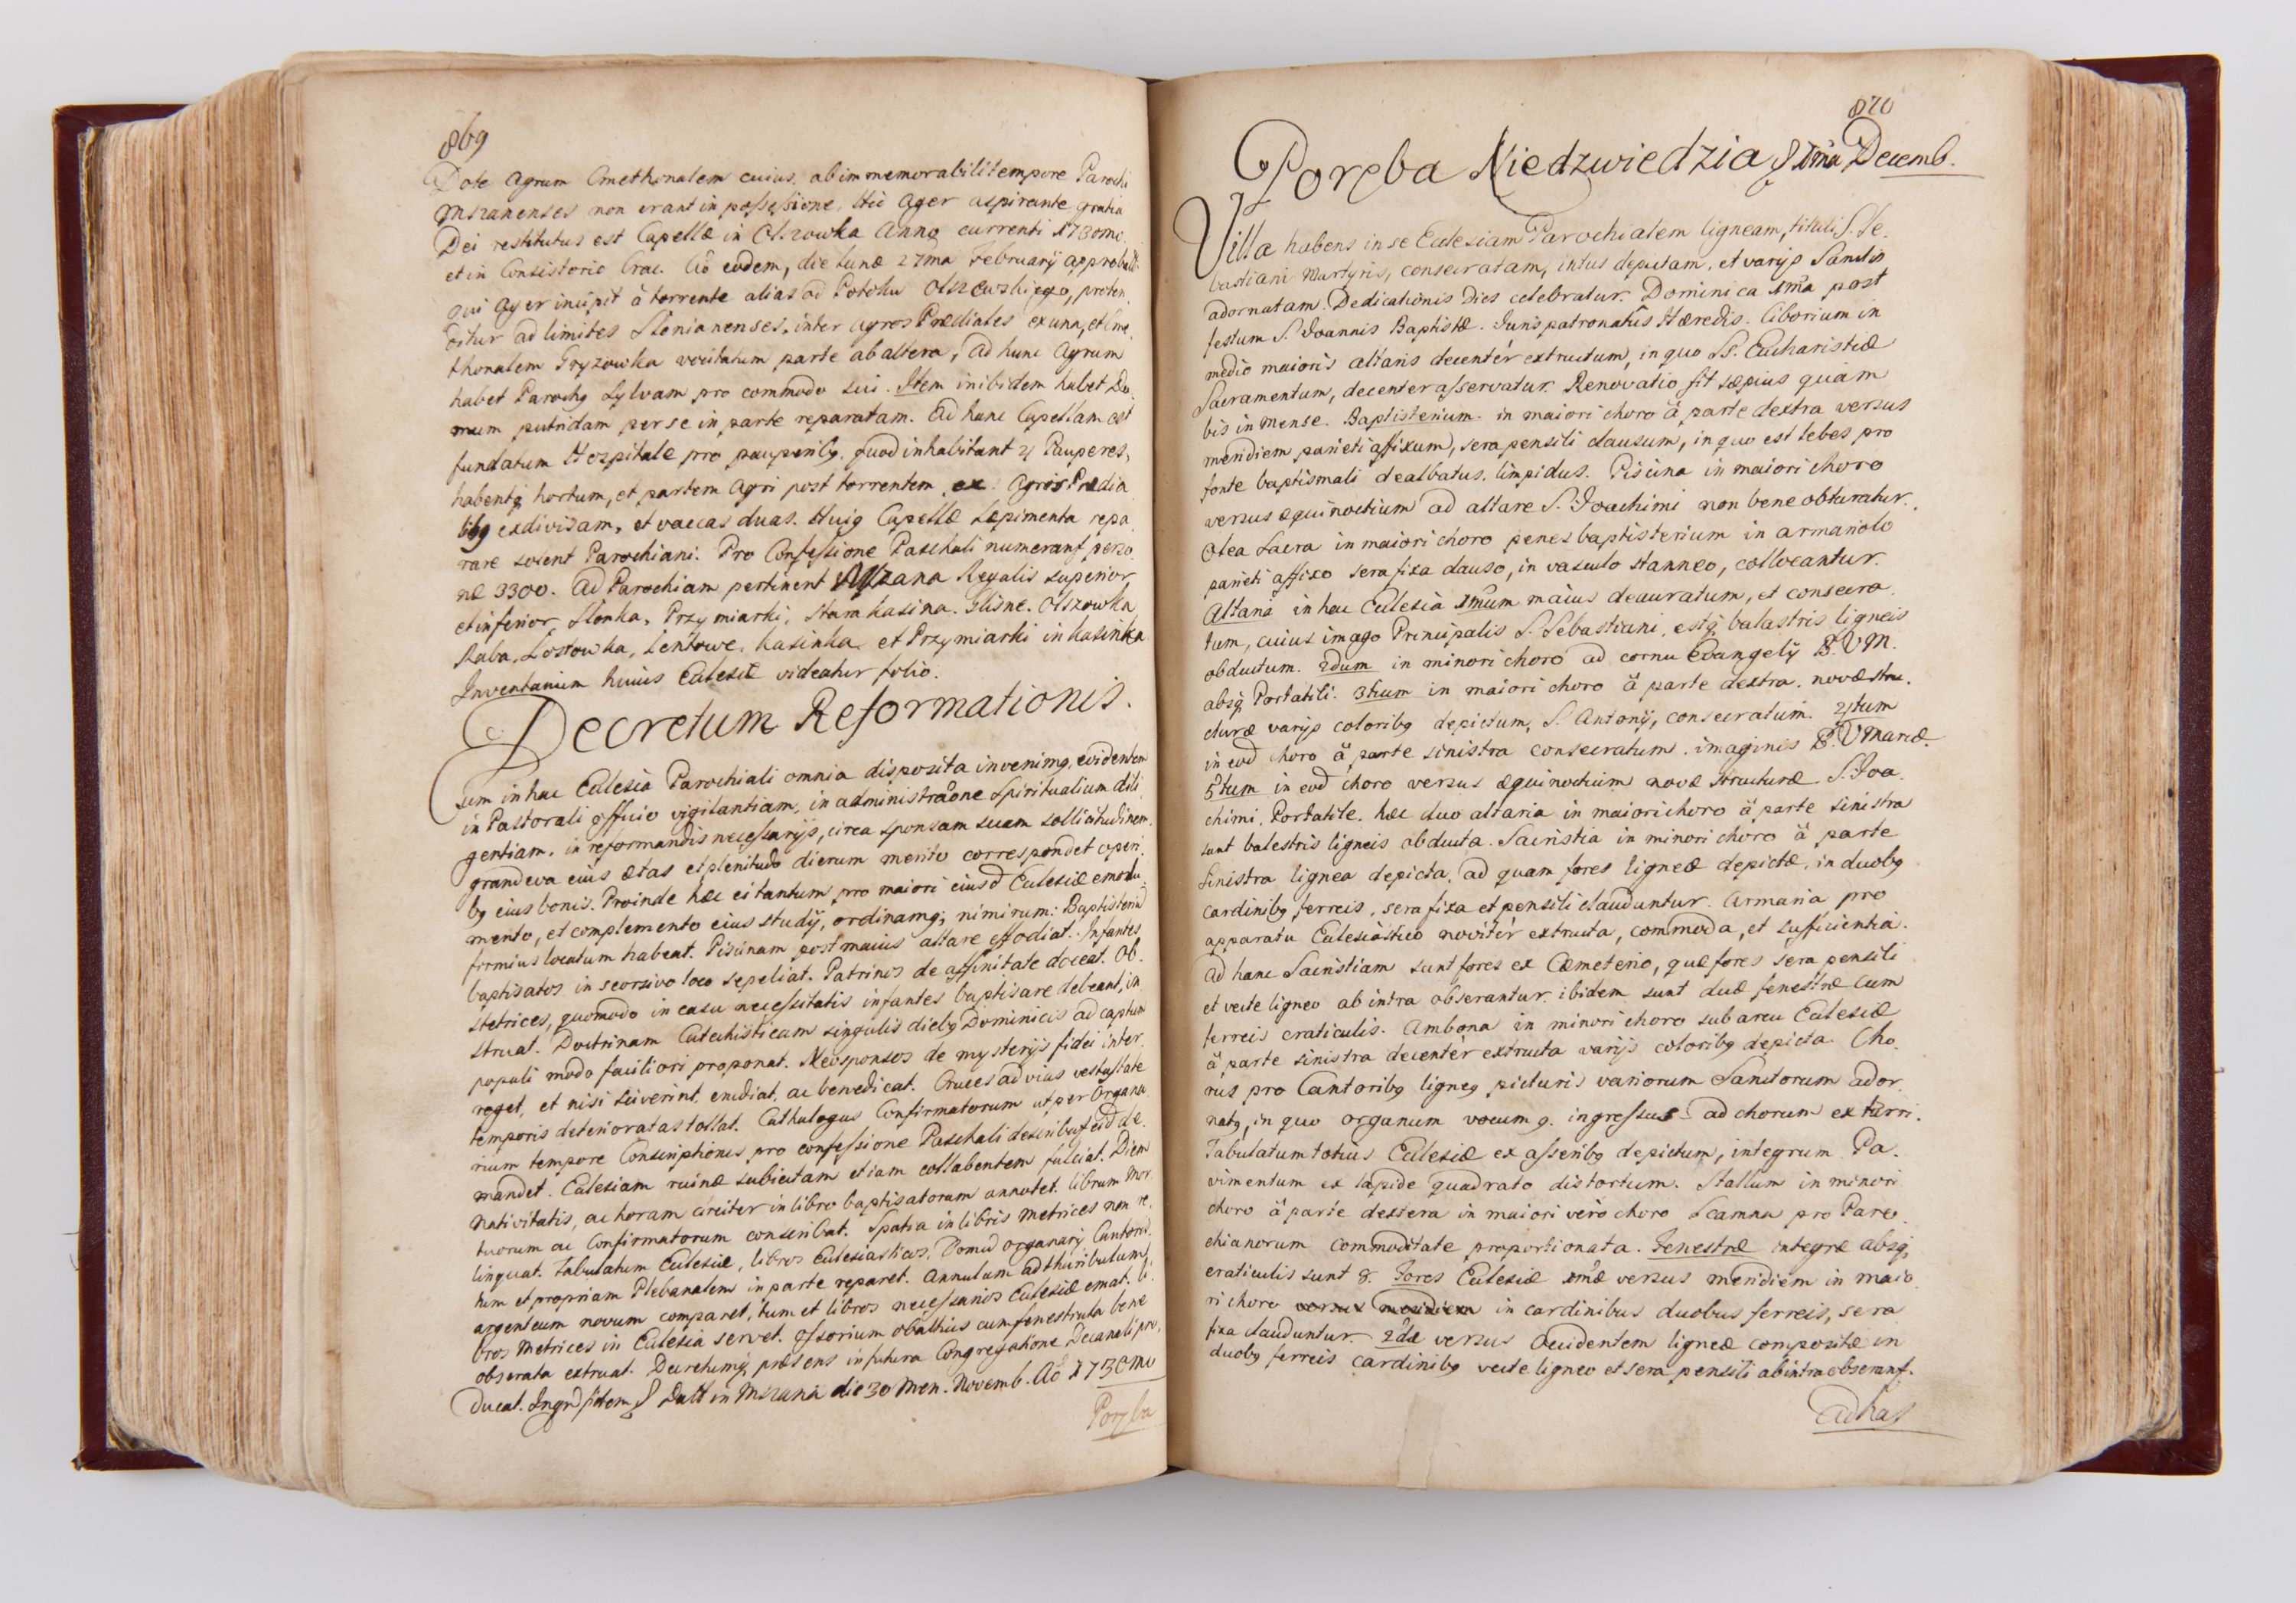 869
Dote agrum Cmethonalem cuius, ab immemorabili tempore Parochi
Mszanenses non erant in possessione. Hic ager aspirante gratia
Dei restitutus est Capellæ in Olszowka Anno currenti 1730mo.
et in Consistorio Crac. Aõ eodem, die Lunæ 27ma February approbatt.
qui Ager incipit à torrente alias od Potoku Olszewskiego, proten
ditur ad limites Slonianenses, inter agros Prædiales ex una, et Cme
thonalem Gryzowka vocitatum parte ab altera, ad hunc Agrum
habet Parochq Sylvam pro commodo sui. Item inibidem habet Do
mum putridam per se in parte reparatam. Ad hanc Capellam est
fundatum Hospitale pro pauperibq. quod inhabitant 4 Pauperes,
habentq hortum, et partem Agri post torrentem ex agris Prædia
libq exdivisam, et vaccas duas. Huiq Capellæ Sæpimenta repa
rare solent Parochiani. Pro Confessione Paschali numerant perso
næ 3300. Ad Parochiam pertinent Mszana Regalis superior,
et inferior, Slonka, Przymiarki, Stara Kasina. Glisne. Olszowka
Raba, Lostowka, Lentowe, Kasinka, et Przymiarki in Kasinka
Inventarium huius Ecclesiæ videatur folio.
Decretum Reformationis.
Cum in hac Ecclesia Parochiali omnia disposita invenimq, evidentem
in Pastorali officio vigilantiam, in administraõne Spiritualium dili
gentiam, in reformandis necessarijs, circa sponsam suam sollicitudinem.
grandeva eius ætas et plenitudo dierum merito correspondet operi
bq eius bonis. Proinde hæc ei tantum pro maiori eiusd Ecclesiæ emolu
mento, et complemento eius studij, ordinamq, nimirum: Baptisterium
firmius locatum habeat. Piscinam post maius altare effodiat. Infantes
baptisatos in seorsivo loco sepeliat. Patrinos de affinitate doceat. Ob.
stetrices, quomodo in casu necessitatis infantes baptisare debeant, in
struat. Doctrinam Catechisticam singulis diebq Dominicis ad captum
populi modo faciliori proponat. Neosponsos de mysterijs fidei inter
roget, et nisi sciverint, erudiat, ac benedicat. Cruces ad vias vestustate
temporis deterioratas tollat. Cathalogus Confirmatorum ut per Organa
rium tempore Conscriptionis pro confessione Paschali describat eid de
mandet. Ecclesiam ruinæ subiectam etiam collabentem fulciat. Diem
Nativitatis, ac horam circiter in libro baptisatorum annotet. librum Mor
tuorum ac Confirmatorum conscribat. Spatia in libris Metrices non re
linquat. Tabulatum Ecclesiæ, libros Ecclesiasticos, Domũ organarij Cantoris.
tum et propriam Plebanalem in parte reparet. Annulum ad thuribulum
argenteum novum comparet, tum et libros necessarios Ecclesiæ emat. li
bros Metrices in Ecclesia servet. Ossorium obalthius cum fenestrula bene
obserata extruat. Decretumq præsens in futura Congregatione Decanali pro
ducat. Datt in Mszana die 30 Men. Novemb. Aõ 1730mo
Poręba
870
Poręba Niedzwiedzia 1ma Decemb.
Villa habens in se Ecclesiam Parochialem ligneam, tituli S. Se
bastiani Martyris, consecratam, intus depictam, et varijs Sanctis
adornatam. Dedicationis Dies celebratur. Dominica 1ma post
festum S. Joannis Baptistæ. Juris patronatûs Hæredis. Ciborium in
medio maioris altaris decentér extructum, in quo SS. Eucharistiæ
Sacramentum, decenter asservatur. Renovatio fit sæpius quam
bis in Mense. Baptisterium in maiori choro à parte dextra versus
meridiem parieti affixum, sera pensili clausum, in quo est lebes pro
fonte baptismali dealbatus, limpidus. Piscina in maiori choro
versus æquinoctium ad altare S. Joachimi non bene obturatur.
Olea Sacra in maiori choro penes baptisterium in armariolo
parieti affixo sera fixa clauso, in vasculo stanneo, collocantur.
Altaria in hac Ecclesia 1mum maius deauratum, et consecra
tum, cuius imago Principalis S. Sebastiani, estq balastris ligneis
obductum. 2dum in minori choro ad cornu Evangelij B.V.M.
absq Portatili. 3tium in maiori choro à parte dextra. novæ stru
cturæ varijs coloribq depictum, S. Antonij, consecratum. 4tum
in eod choro à parte sinistra consecratum imaginis B.V. Mariæ.
5tum in eod choro versus æquinoctium novæ structuræ S. Joa
chimi, Portatile. hæc duo altaria in maiori choro à parte sinistra
sunt balestris ligneis obducta. Sacristia in minori choro à parte
sinistra lignea depicta, ad quam fores ligneæ depictæ, in duobq
cardinibq ferreis, sera fixa et pensili clauduntur. Armaria pro
apparatu Ecclesiastico novitér extructa, commoda, et sufficientia.
Ad hanc Sacristiam sunt fores ex Cæmeterio, quæ fores sera pensili
et vecte ligneo ab intra obserantur. ibidem sunt duæ fenestræ cum
ferreis craticulis. Ambona in minori choro sub arcu Ecclesiæ
à parte sinistra decentér extructa varijs coloribq depicta. Cho
rus pro Cantoribq ligneq picturis variorum Sanctorum ador
natq, in quo organum vocum 9. ingressus ad chorum ex turri.
Tabulatum totius Ecclesiæ ex asseribq depictum, integrum. Pa
vimentum ex lapide quadrato distortum. Stallum in minori
choro à parte dextera in maiori verò choro Scamna pro Paro
chianorum commoditate proportionata. Fenestræ integræ absq
craticulis sunt 8. Fores Ecclesiæ 1mæ versus meridiem in maio
ri choro versus meridiem in cardinibus duobus ferreis, sera
fixa clauduntur. 2dæ versus Occidentem ligneæ compositæ in
duobq ferreis cardinibq vecte ligneo et sera pensili ab intra obserant.
Ad has